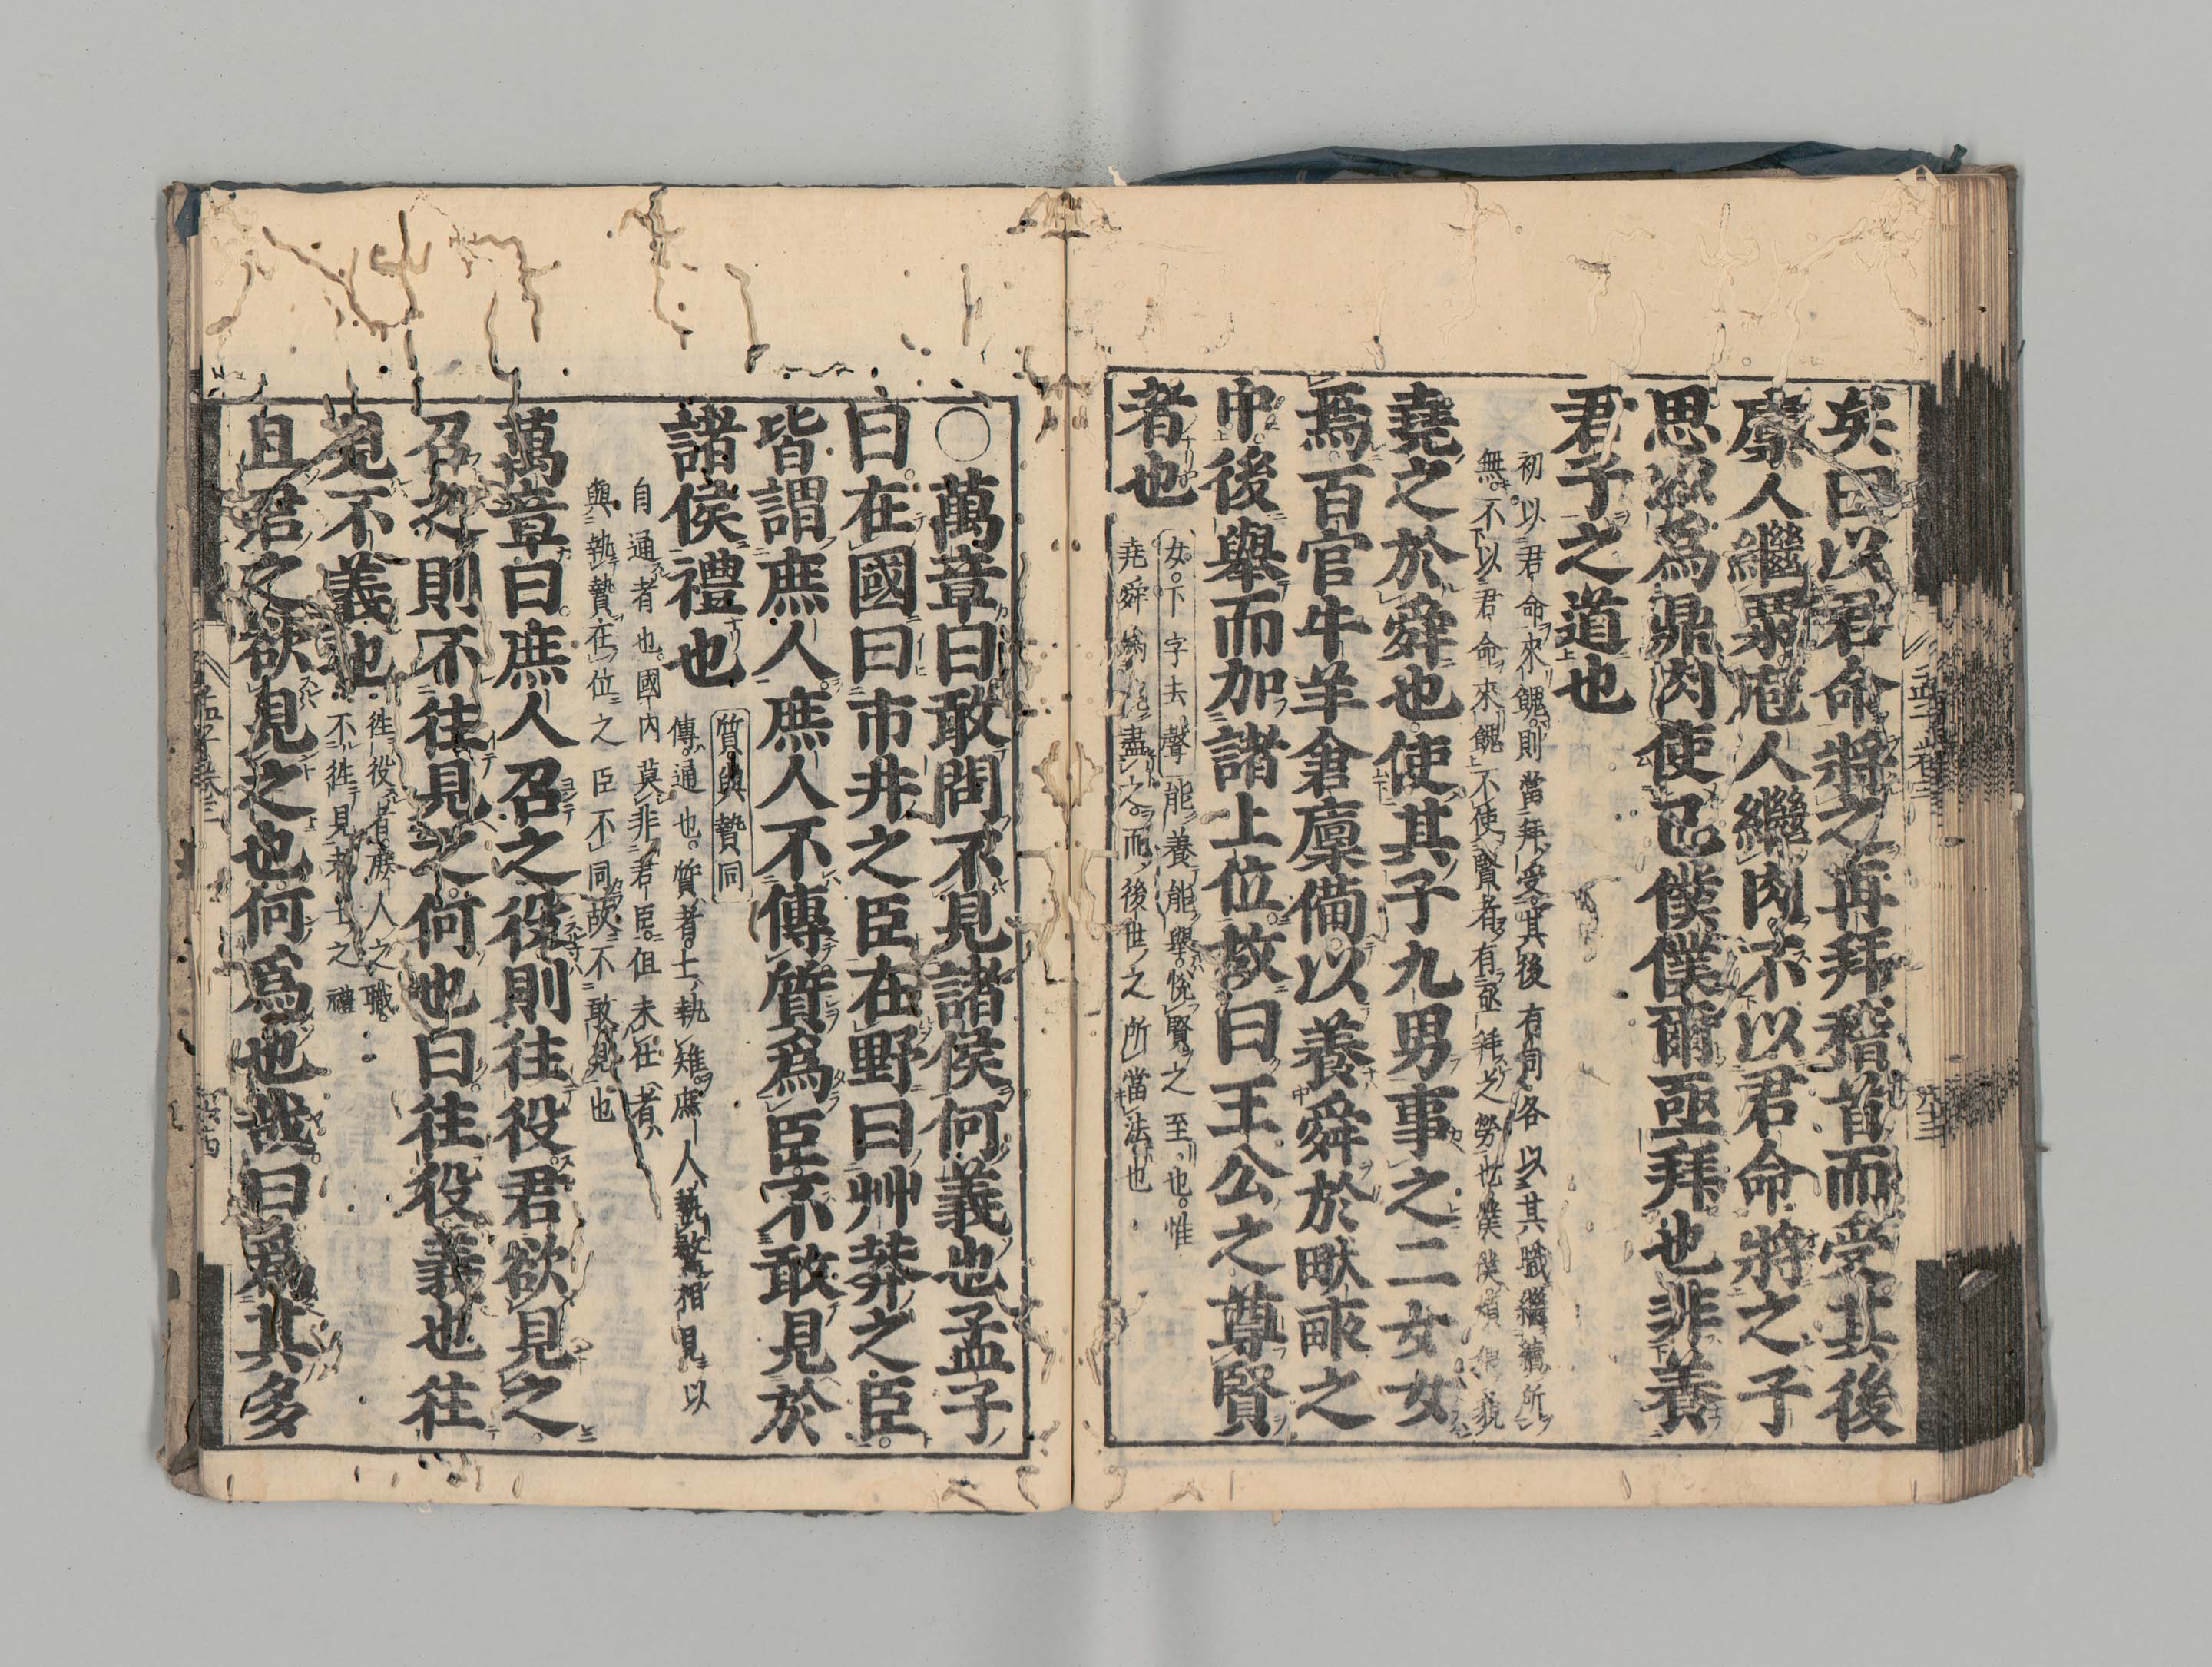 矣曰以君命將之再拜稽首而受其後
廩人繼粟庖人繼肉不以君命將之子
思以爲鼎肉使己僕僕爾亟拜也非養
君子之道也
初以君命來餽則當拜受其後有司各以其職繼續所
無不以君命來餽不使賢者有亟拜之勞也僕僕煩猥貌
堯之於舜也使其子九男事之二女女
焉百官牛羊倉廩備以養舜於畎畝之
中後舉而加諸上位故曰王公之尊賢
者也
女下字去聲能養能舉悅賢之至也惟
堯舜爲能盡之而後世之所當法也
○萬章曰敢問不見諸侯何義也孟子
曰在國曰市井之臣在野曰艸莽之臣
皆謂庶人庶人不傳質爲臣不敢見於
諸侯禮也
質與贄同
傳通也質者士執雉庶人執鶩相見以
自通者也國內莫非君臣但未仕者
與執贄在位之臣不同故不敢見也
萬章曰庶人召之役則往役君欲見之
召之則不往見之何也曰往役義也往
見不義也
徃役者庶人之職
不徃見者士之禮
且君之欲見之也何爲也哉曰爲其多
孟子卷三